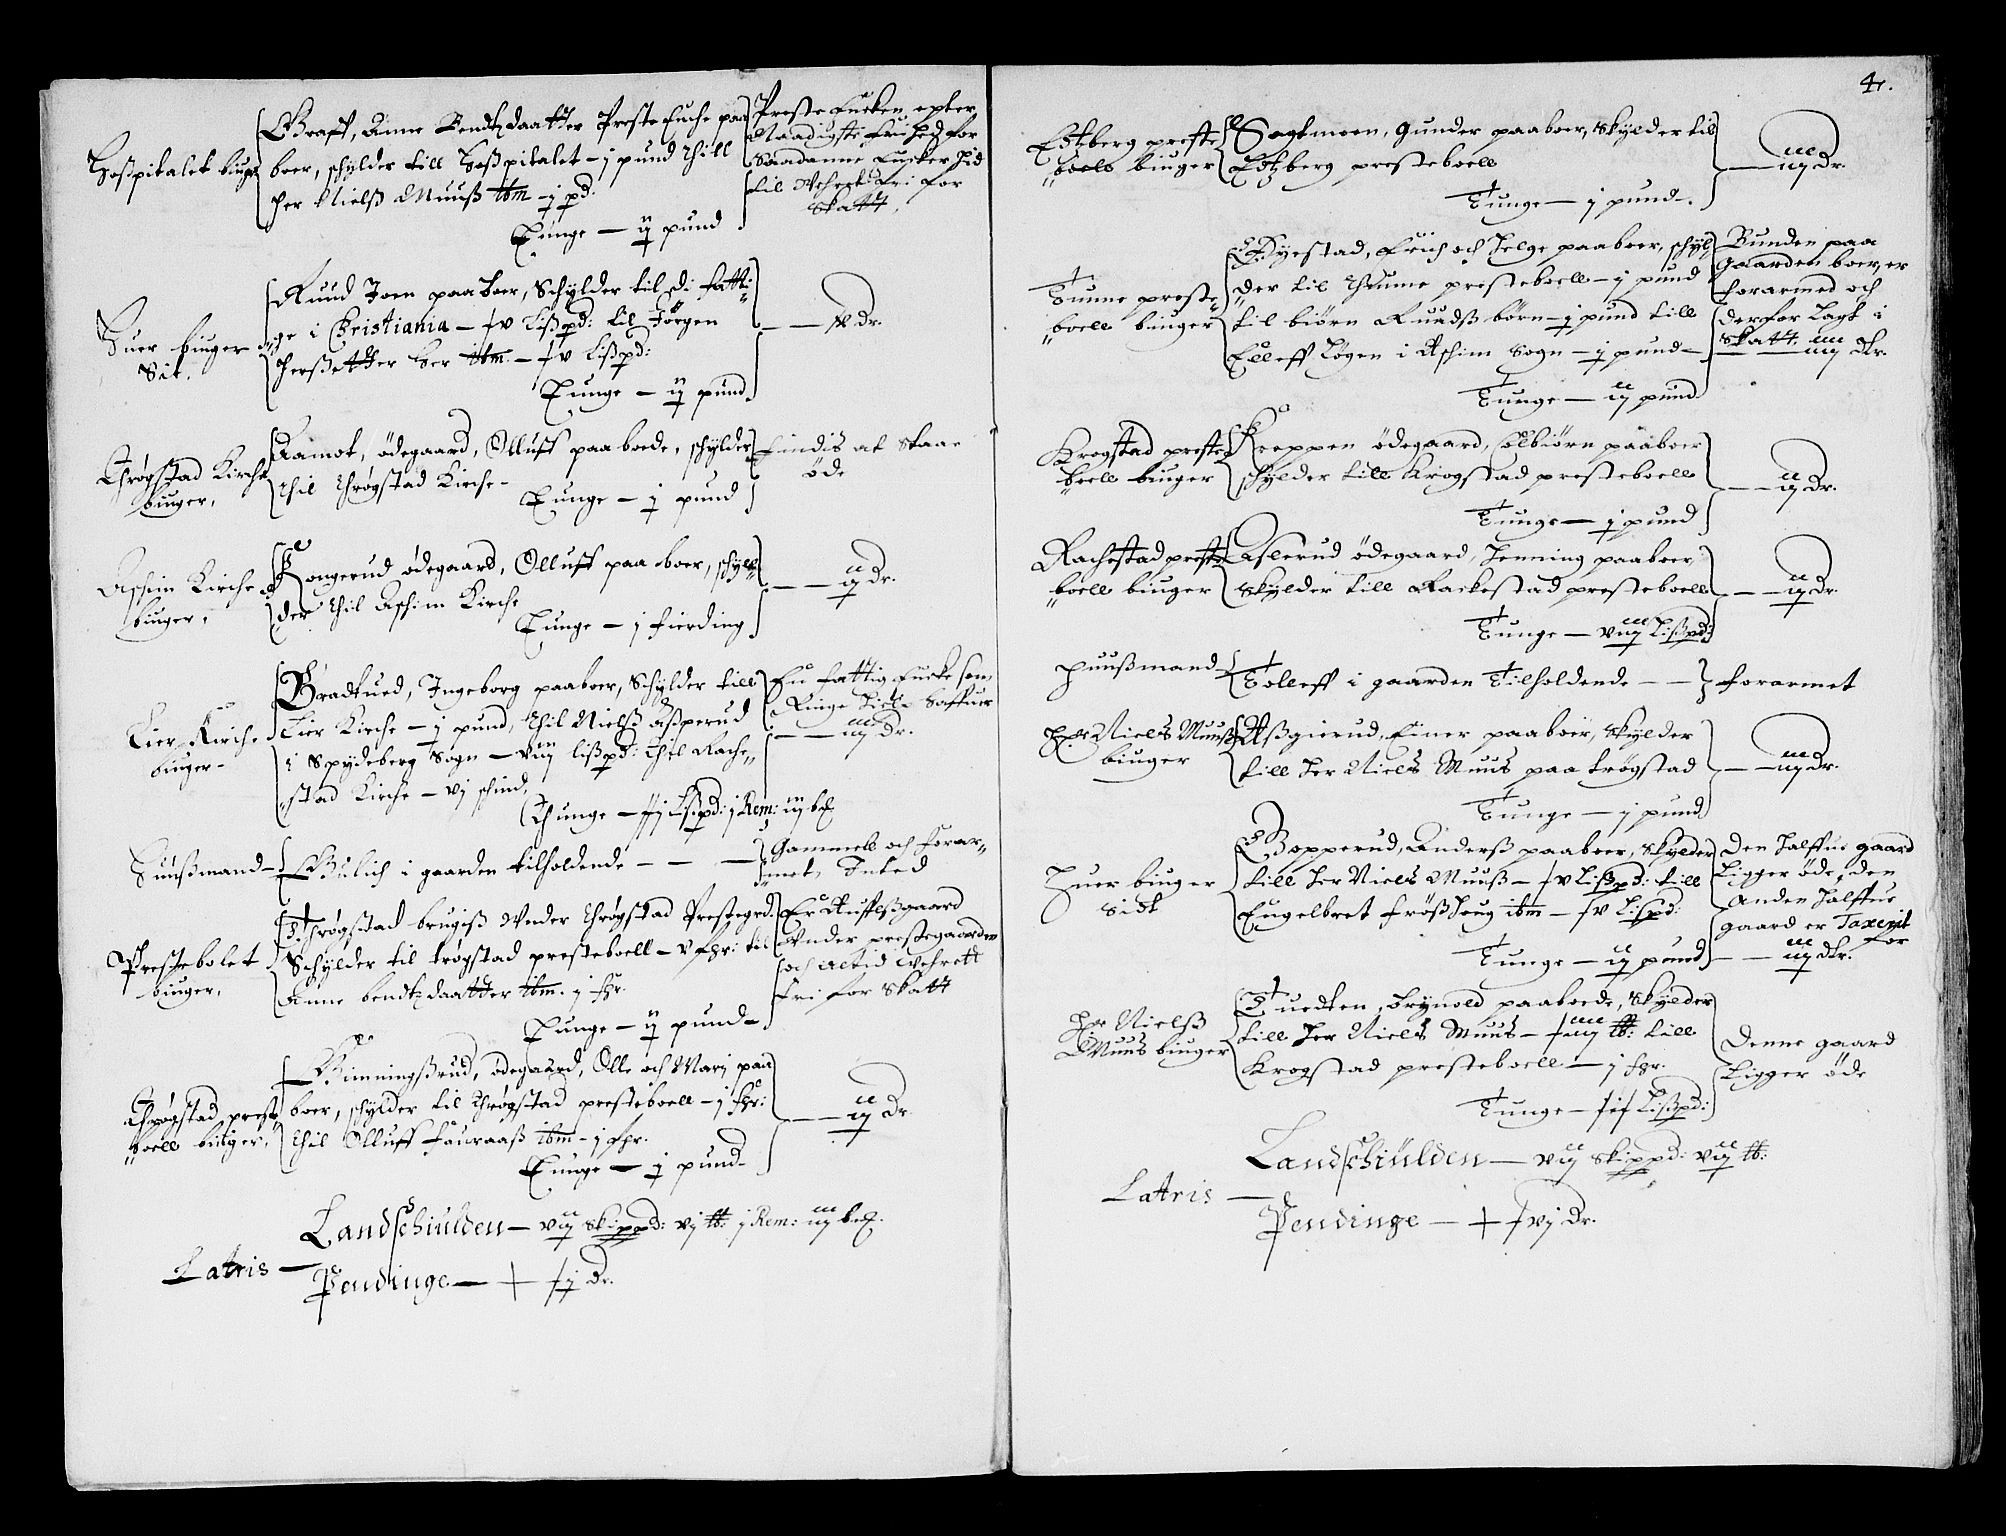 Hoßpitalet biuger
Graff, Anne Bendtzdaatter Preste Enche paa
boer, schylder till Hoßpitalet – j pund thill
her Nielß Muuß ibm – j pd:
Tunge – ij pund
Preste Encken, epter
Naadigste frihed for
Saadanne Encker hid
til Wehret fri for
Skatt,
Huer biuger
Sit.
Ruud Joen paaboer, Schylder til di fatti
ge i Christiania – xv Lißpd: til Jörgen
ber ibm. – xv Lißpd:
Tunge – ij pund
– – dr.
Thrøgstad Kirche
biuger,
Aamot, ödegaard, Olluff paaboede, schylder
thil thrøgstad Kirche –
Tunge – j pund
findis at staae
öde
Aschim Kirche
biuger,
Kongerud ødegaard, Olluff paa boer, schyl
der thil Aschim Kirche
Tunge – j fierding
– – ij dr.
Eier Kirche
biuger –
Bradtued, Ingeborg paaboer, Schylder till
Eier Kirche – j pund, thil Nielß Aßperud
i Spydeberg Sogn – viij lißpd: thil Rache
stad Kirche – vj schind,
Thunge – Lißpd: j Rem: iij bß
En fattig Encke som
Ringe
– – iij dr.
Hüußmand –
Gulich i gaarden tilholdende – – –
Gammell och forar
met, Inted
Prestebolet
biuger,
Thrøgstad brugiß Wnder thrøgstad Prestegrd.
Schylder til trøgstad presteboell – v fjr: til
Anne bendtzdaatter ibm. j fjr.
Tunge – ij pund –
Er
Wnder prestegaarden
och altid Wehrett
fri for Skatt
Thrøgstad preste
boell biuger,
Gimmingßrud, ödegaard, Olle och Marj paa
boer, schylder til thrøgstad presteboell – j fjr:
thil Olluff ibm – j fjr.
Tunge – j pund –
– – ij dr.
Landschiulden – viij Skippd: vj ℔: j Rem: iij bß.
Latris –
Pendinge – + xij dr.
4.
Eitzberg preste
boels biuger
Sagtmoen, Gunder paaboer, skylder til
Eitzberg presteboell
Tunge – j pund –.
– – iij dr.
Tunne preste
boell biuger
Dyrstad, Erich och Helge paaboer, schyl
der til Thunne presteboell – j pund
til biørn Ruudß börn – j pund till
Elleff i Aschim Sogn – j pund –
Tunge – iij pund
Bunden paa
Gaarden boer, er
forarmed och
derfor lagt i
Skatt, – – iiij dr.
Krogstad preste
boell biuger
Kreppen ödegaard, Colbiørn paaboer
schylder till Krogstad presteboell
Tunge – j pund
– – ij dr.
Rachestad preste
boell biuger
Aslerud ödegaard, Henning paaboer
skylder till Rackestad presteboell
Tunge – viij Lißpd:
– – ij dr.
Huußmand –
Tolleff i gaarden Tilholdende – –
forarmet
Her Niels Muuß
biuger
Aßgierud, Einer paaboer, skylder
till her Niels Muus paa trøgstad
Tunge – j pund
– – iij dr.
Huer biuger
Sidt
Gopperud, Anderß paaboer, skylder
till her Niels Muuß – xv Lißpd: till
Engelbret frößhoug ibm – xv Lispd:
Tunge – ij pund
Den halffue gaard
Ligger öde, den
Anden halffue
gaard er Taxerit
for
– – iij dr.
Her Nielß
Muus biuger
Tuedten, Brynold paaboede, skylder
till her Niels Muus – xiiij ℔: till
Krogstad presteboell – j fjr.
Tunge – xix Lißpd:
Denne gaard
Ligger öde
Landschiulden – viij Skippd: viij ℔:
Latris –
Pendinge – + xvj dr.